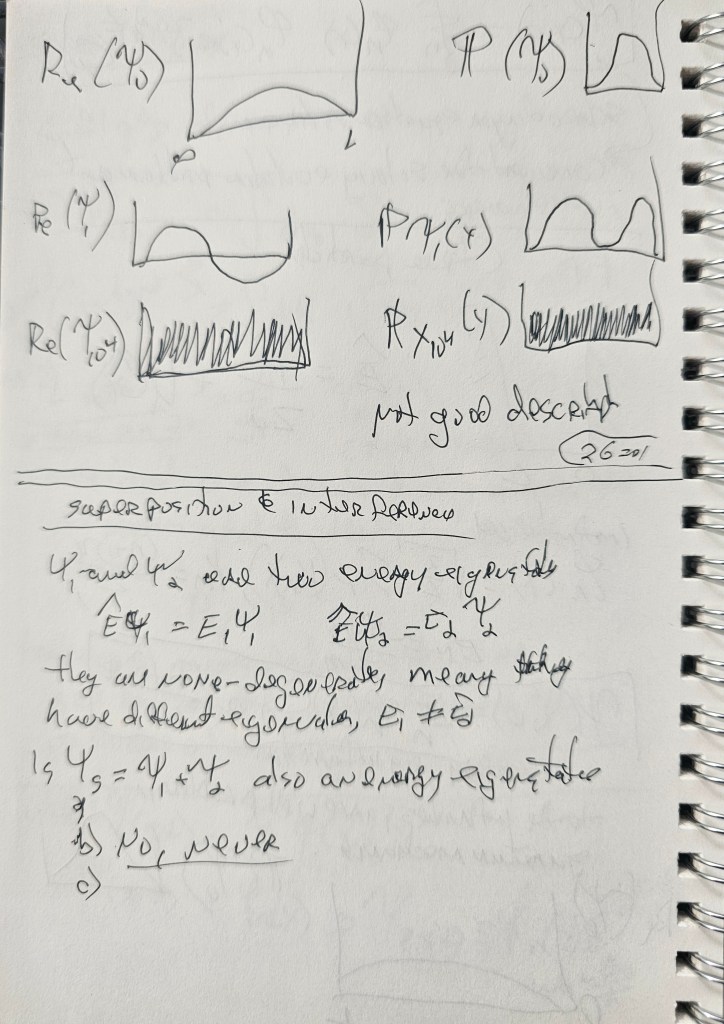 Re (ψ₀)
∞ L
P (ψ₀)
Re (ψ₁)
P ψ₁(x)
Re (ψ₁₀⁴)
P x₁₀⁴ (y)
not good descript
26 201
SUPERPOSITION & INTERFERENCE
ψ₁ and ψ₂ two energy eigenstates
Êψ₁ = E₁ψ₁ Êψ₂ = E₂ψ₂
they are none-degenerate, meany they
have different eigenvalues, E₁ ≠ E₂
Is ψₛ = ψ₁ + ψ₂ also an energy eigenstates
a)
b) No, never
c)